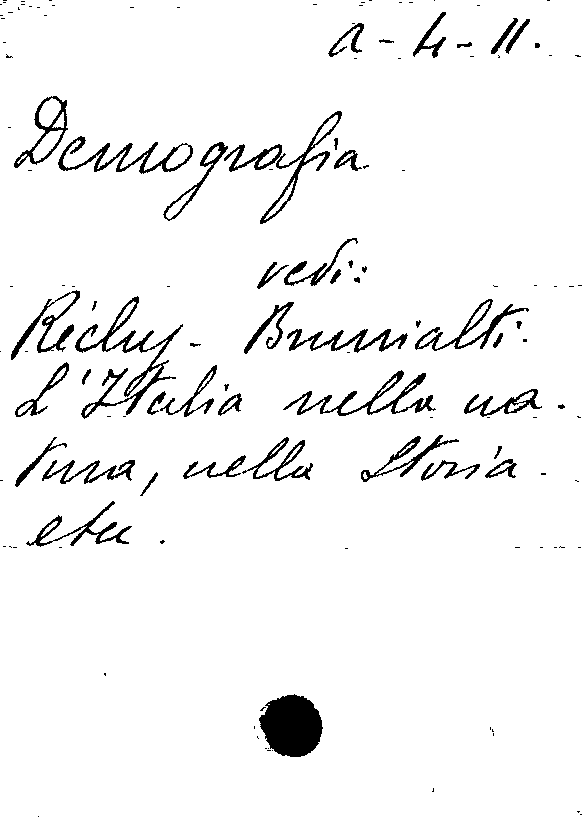 a-4-11.
Demografia
vedi:
Réclus - Brunialti.
L'Italia nella na-
tura, nella Storia
etc.